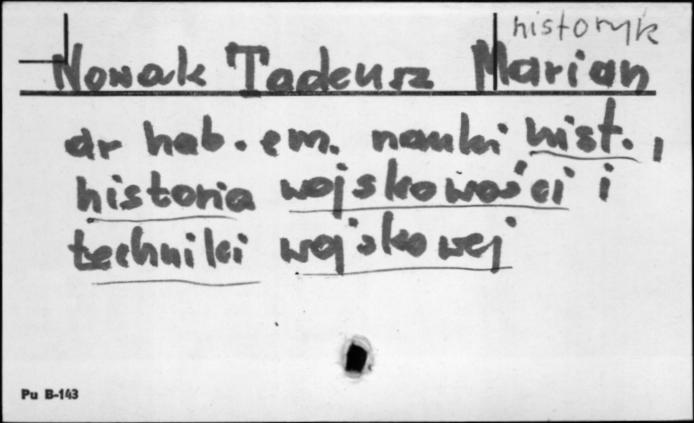 historyk
Nowak Tadeusz Marian
dr hab. em. nauki hist.,
historia wojskowości i
techniki wojskowej
Pu B-143